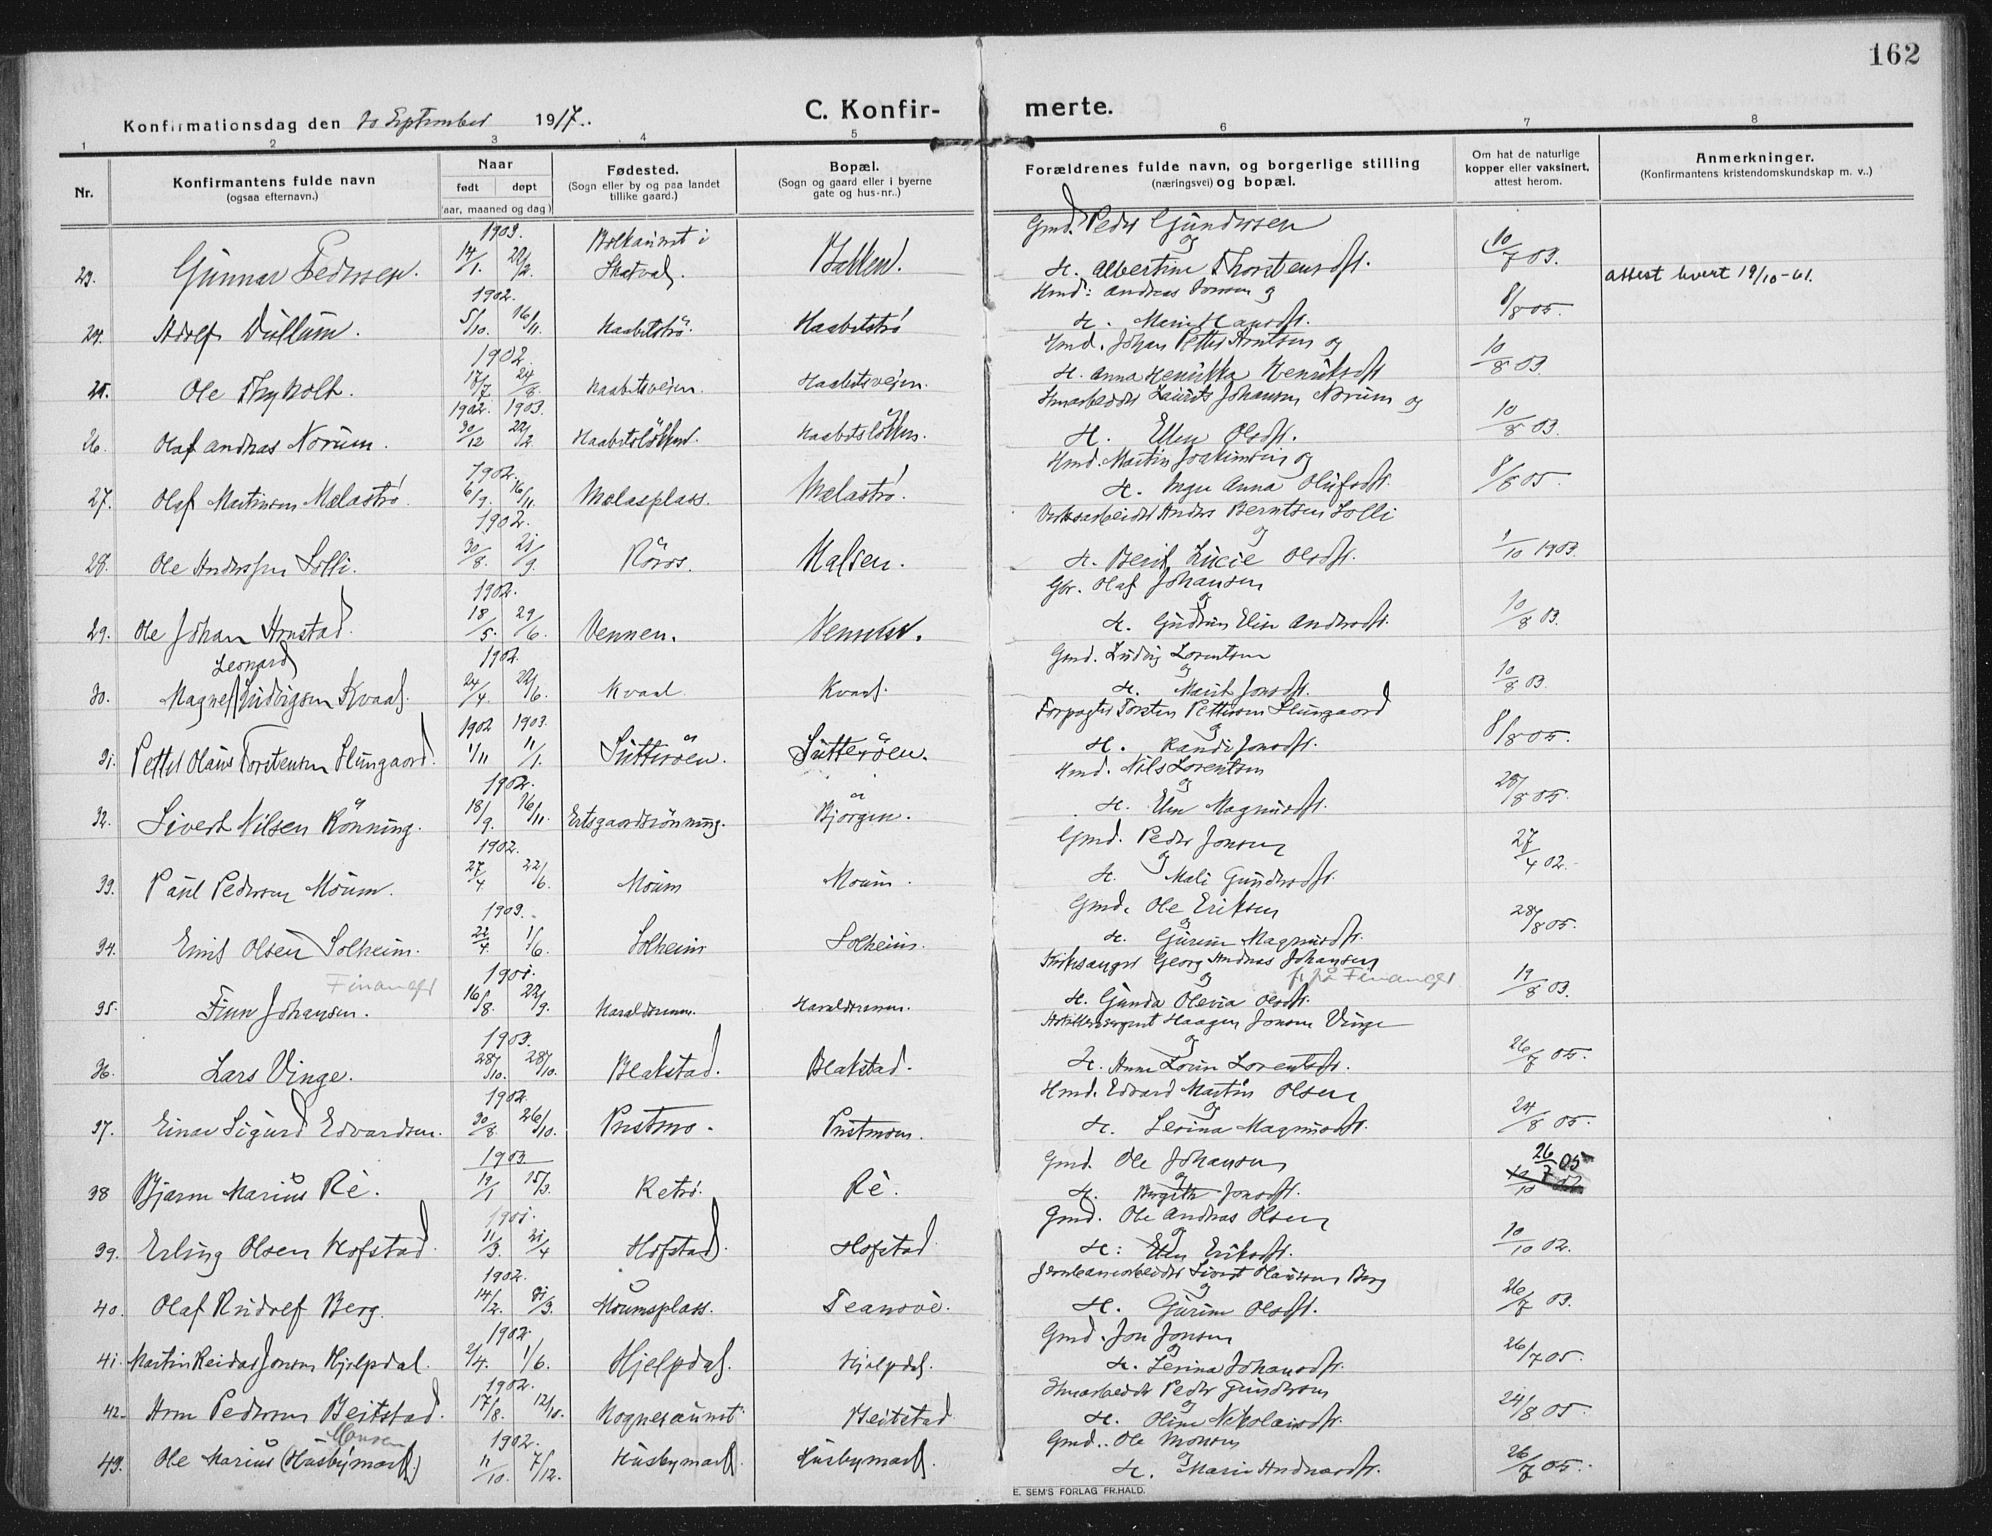 162
Konfirmationsdag den 30 September 1917.
C. Konfirmerte.
1 2 3 4 5 6 7 8
Nr.
Konfirmantens fulde navn
(ogsaa efternavn.)
Naar
født døpt
(aar, maaned og dag)
Fødested.
(Sogn eller by og paa landet
tillike gaard.)
Bopæl.
(Sogn og gaard eller i byerne
gate og hus-nr.)
Forældrenes fulde navn, og borgerlige stilling
(næringsvei) og bopæl.
Om hat de naturlige
kopper eller vaksinert,
attest herom.
Anmerkninger.
(Konfirmantens kristendomskundskap m. v..)
Gmd. Peder Gundersen
1903. i og
23. Gunnar Pedersen. 14/1. 22/2. Skatval. Bakken. H. Albertine Thorstensdtr. 10/7 03. attest levert 19/10-61.
1902. Hmd: Andreas og
24. Adolf Dullum. 5/10. 16/11. Haabetstrø. Haabetstrø H. 8/8 05.
1902. Hmd. Johan Petter Arntsen og
25. Ole Thyholt. 17/7 24/8. Haabetsveien. Haabetsveien. H. Anna Henrikka Henriksdtr 10/8 03.
1902. 1903. Laurits Johansen Norum og
26. Olaf Andreas Norum. 30/12 22/2 Haabetsløkken. Haabetsløkken. H. Ellen Olsdtr. 10/8 03.
1902. Hmd. Martin Joakimsen og
27. Olaf Martinsen Mælastrø. 6/9. 16/11. Mælasplass. Mælastrø. H. Inger Anna Olufsdtr. 8/8 05.
1902. Anders Berntsen Lolli
og
28. Ole Anderssen Lolli. 30/8. 21/9. Røros. Malsen. H. Berit Lucie Olsdtr. 1/10 1903.
1902. Gbr. Olaf Johansen
og
29. Ole Johan Arnstad. 18/5. 29/6. Vennen. Vennen. H. Gudrun Elise Andersdtr. 10/8 03.
Leonard 1902. Gmd. Ludvig Lorentsen
og
30. Magnes Ludvigsen Kvaal. 24/4. 22/6. Kvaal. Kvaal. H. Marit Jonsdtr. 10/8 03.
1902 1903. Forpagter Torsten Pettersen Slungaard
og
31. Petter Olaus Torstensen Slungaard. 1/11 11/1. Sutterøen. Sutterøen. H. Randi Jonsdtr. 8/8 05.
1902. Hmd. Nils Lorentsen
og
32. Sivert Nilsen Rønning. 18/9. 16/11. Ertsgaardsrønning. Bjørgen. H. Elen Magnusdtr. 28/8 05.
1902. Gmd. Peder Jonsen
og
33. Paul Pedersen Moum. 27/4 22/6. Moum Moum. H. Mali Gundersdtr. 27/4 02.
1903. Gmd. Ole Eriksen
og
34. Emil Olsen Solheim. 22/4 1/6. Solheim Solheim. H. Gurine Magnusdtr. 28/8 05.
Finanger 1901. Kirkesanger Georg Andreas Johansen
og Finanger
35. Finn Johansen. 16/8. 22/9. Haraldreina. Haraldreina. H. Gunda Olevia Olsdtr. 19/8 03.
1903. Artillerisergent Haagen Jonsen Vinge
og
36. Lars Vinge. 28/10. 28/10. Blakstad. Blakstad. H. Anne Lovise Lorentsdtr. 26/7 05.
1902. Hmd. Edvard Martin Olsen
og
37. Einar Sigurd Edvardsen. 30/8. 26/10. Prestmo. Prestmoen. H. Serina Magnusdtr. 24/8 05.
1903 Gmd. Ole Johansen 26/7 05
og
38 Bjarne Marius Rè. 19/1 15/3. Retrø. Rè. H. Bergitte Jonsdtr.
1901. Gmd. Ole Andreas Olsen
og
39. Erling Olsen Hofstad. 11/3. 21/4 Hofstad. Hofstad H: Elen Eriksdtr. 10/10 02.
1902. Jernbanearbeider Sivert Olaussen Berg
og
40. Olaf Rudolf Berg. 14/2. 31/3. Moumsplass. H. Gurine Olsdtr. 26/7 03.
1902. Gmd. Jon Jonsen
og
41. Martin Reidar Jonsen Hjelpdal. 2/4. 1/6. Hjelpdal. Hjelpdal. H. Serina Johansdtr. 26/7 05.
1902. Peder Gundersen
og
42. Arne Pedersen Beitstad. 17/8. 12/10. Beitstad H. Oline Nikolaisdtr. 24/8 05.
Monsen 1902. Gmd. Ole Monsen
og
43. Ole Marius (Husbymark) 11/10. 7/12. Husbymark. Husbymark. H. Marie Andreasdtr. 26/7 05.
E. SEM'S FORLAG FR.HALD.